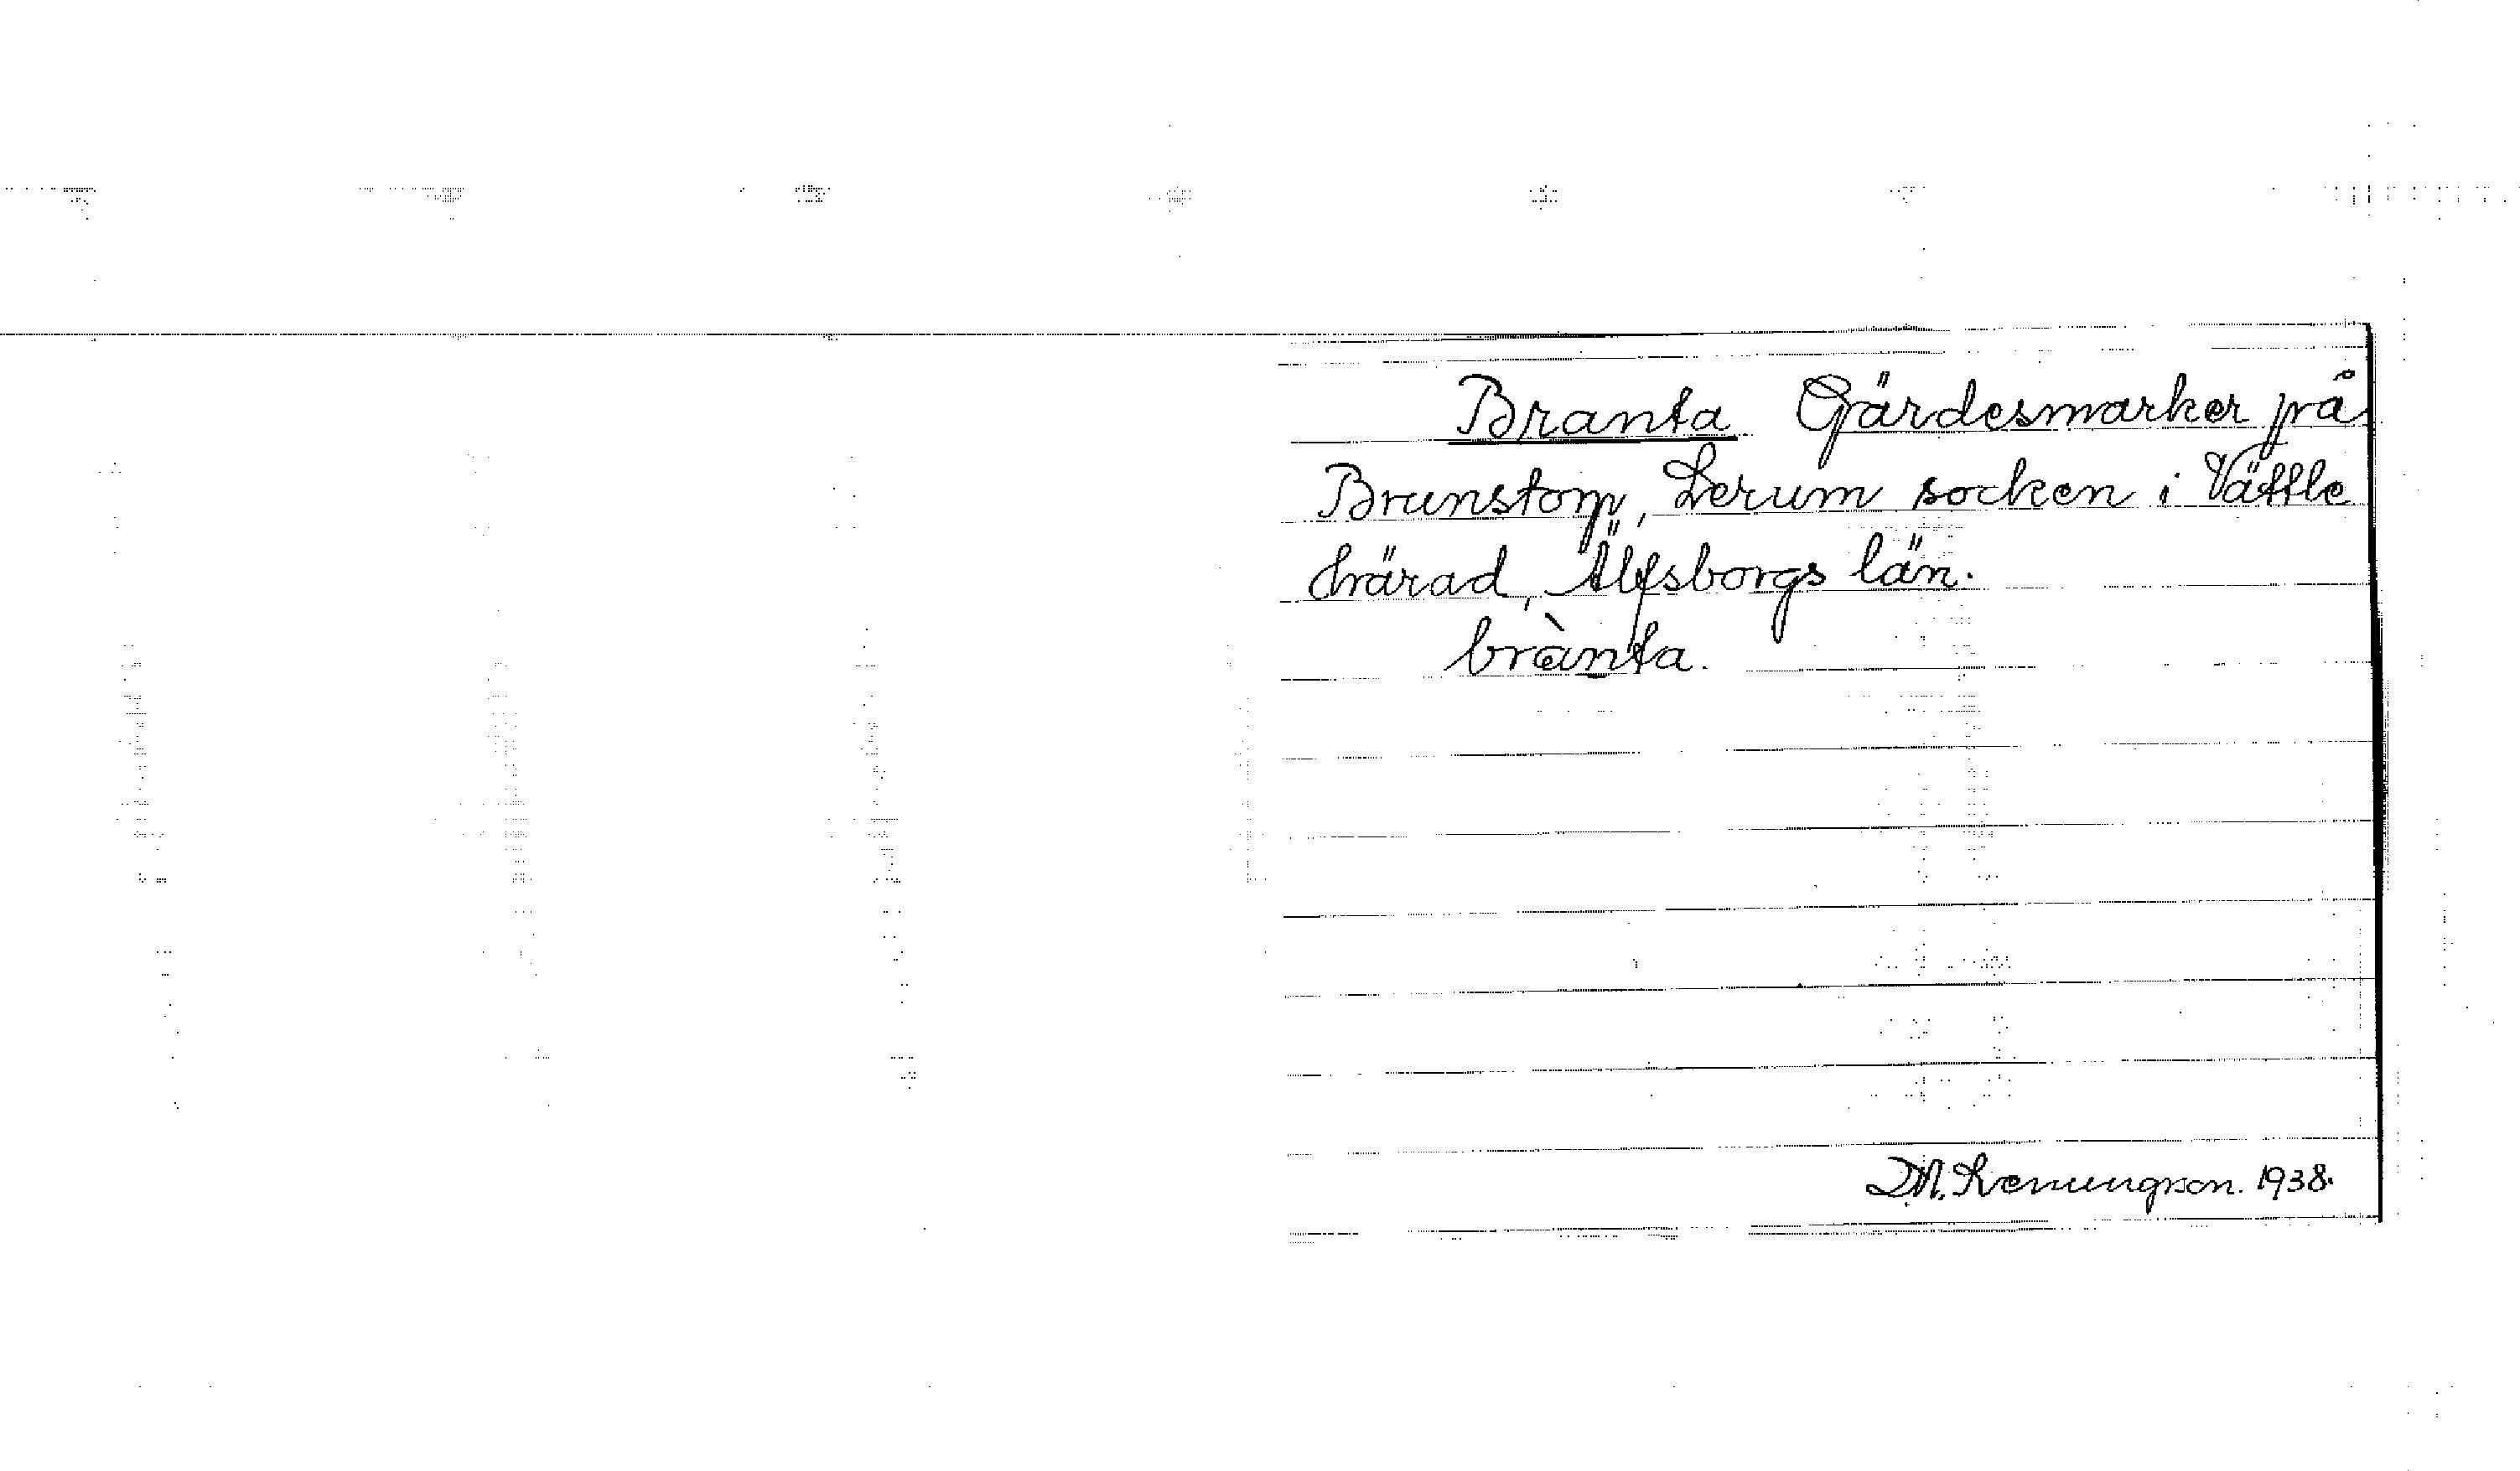 Branta Gärdesmarker på
Brunstorp, Lerum socken i Vättle
härad, Älfsborgs län.
brànta.
1938.